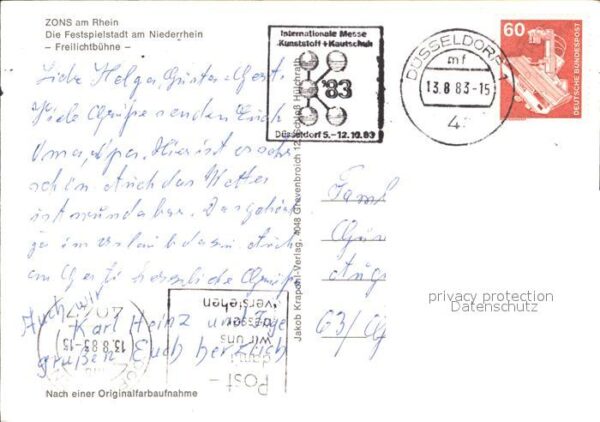 ZONS am Rhein
Die Festspielstadt am Niederrhein
- Freilichtbühne -
Liebe Helga, Günter + Gesti
Viele Grüße senden Euch
Oma, Opa. Hier ist es sehr
schön. Auch das Wetter
ist wunderbar. Das gehört
ja im Urlaub dazu. Auch
an Gesti herzliche Grüße
Auch wir
Karl Heinz und
grüßen Euch herzlich
Nach einer Originalfarbaufnahme
Jakob Krapohl-Verlag, 4048 Grevenbroich 12, Schloß Hülchrath
Internationale Messe
Kunststoff + Kautschuk
'83
Düsseldorf 5.-12.10.83
DÜSSELDORF 1
mf
13.8.83-15
4
60
DEUTSCHE BUNDESPOST
Fam
Gün
Aug
63/
privacy protection
Datenschutz
Post-
damit
wir uns
besser
verstehen
13.8.83-15